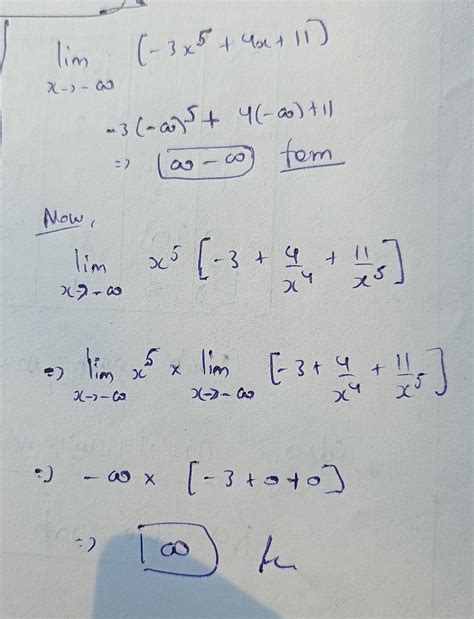 lim (-3x⁵ + 4x + 11)
x→-∞
-3(-∞)⁵ + 4(-∞) + 11
⇒ ∞ - ∞ form
Now,
lim x⁵ [-3 + 4/x⁴ + 11/x⁵]
x→-∞
⇒ lim x⁵ × lim [-3 + 4/x⁴ + 11/x⁵]
x→-∞ x→-∞
⇒ -∞ × [-3 + 0 + 0]
⇒ ∞